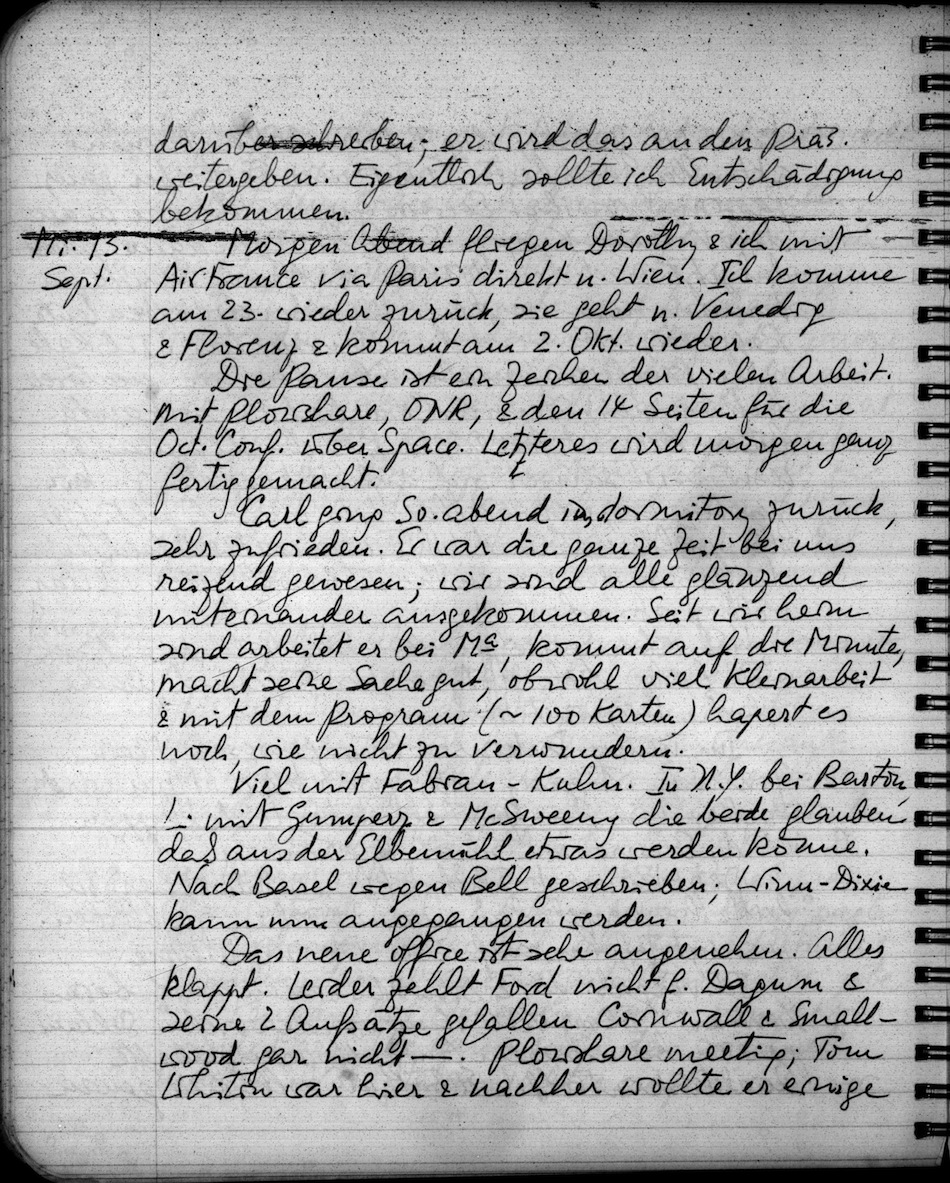 darüber schreiben; er wird das an den Präs.
weitergeben. Eigentlich sollte ich Entschädigung
bekommen.
Mi. 13. Morgen Abend fliegen Dorothy & ich mit
Sept. Air France via Paris direkt n. Wien. Ich komme
am 23. wieder zurück, sie geht n. Venedig
& Florenz & kommt am 2. Okt. wieder.
Die Pause ist ein Zeichen der vielen Arbeit.
mit Plowshare, ONR, & den 14 Seiten für die
Oct. Conf. über Space. Letzteres wird morgen ganz
fertig gemacht.
Carl ging So. abend ins dormitory zurück,
sehr zufrieden. Er war die ganze Zeit bei uns
reizend gewesen; wir sind alle glänzend
miteinander ausgekommen. Seit wir heim
sind arbeitet er bei Ma, kommt auf die Minute,
macht seine Sache gut, obwohl viel Kleinarbeit
& mit dem Program (~ 100 Karten) hapert es
noch, wie nicht zu verwundern.
Viel mit Fabian - Kuhn. In N.Y. bei Barton,
L. mit Gumperz & McSweeny die beide glauben
daß aus der Elbemühl etwas werden könne.
Nach Basel wegen Bell geschrieben; Winn-Dixie
kann nun angegangen werden.
Das neue office ist sehr angenehm. Alles
klappt. Leider zahlt Ford nicht f. Dagum &
seine 2 Aufsätze gefallen Cornwall & Small-
wood gar nicht —. Plowshare meeting; Tom
Whitin war hier & nachher wollte er einige